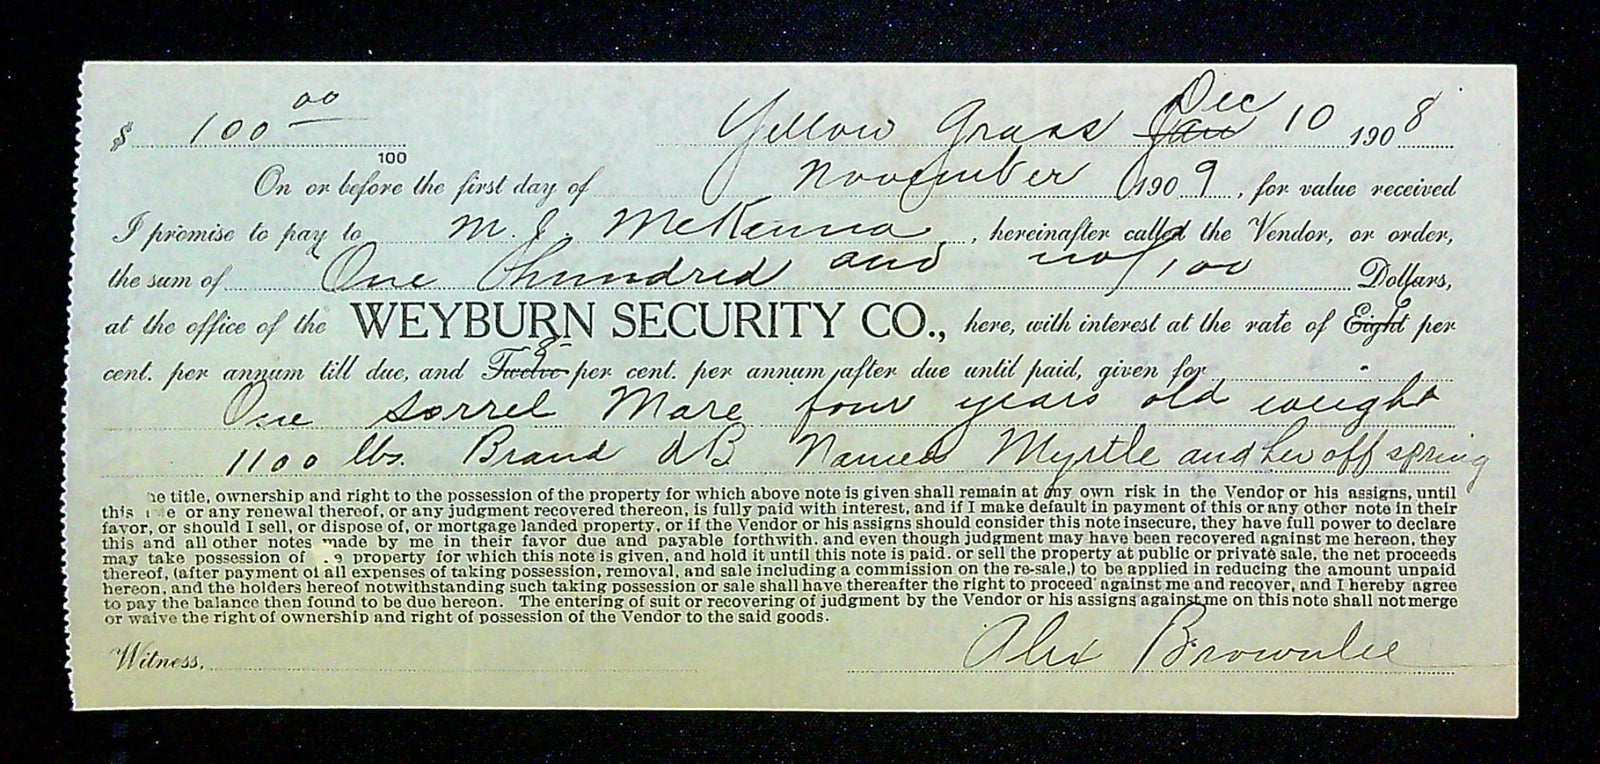 $ 100 00/100 Yellow Grass Dec 10 1908
On or before the first day of November 1909, for value received
I promise to pay to M. J. McKenna, hereinafter called the Vendor, or order,
the sum of One Hundred and no/100 Dollars,
at the office of the WEYBURN SECURITY CO., here, with interest at the rate of Eight per
8
cent. per annum till due, and Twelve per cent. per annum after due until paid, given for
One Sorrel Mare four years old weight
1100 lbs. Brand B Named Myrtle and her offspring
title, ownership and right to the possession of the property for which above note is given shall remain at my own risk in the Vendor or his assigns, until
this or any renewal thereof, or any judgment recovered thereon, is fully paid with interest, and if I make default in payment of this or any other note in their
favor, or should I sell, or dispose of, or mortgage landed property, or if the Vendor or his assigns should consider this note insecure, they have full power to declare
this and all other notes made by me in their favor due and payable forthwith. and even though judgment may have been recovered against me hereon, they
may take possession of property for which this note is given, and hold it until this note is paid. or sell the property at public or private sale, the net proceeds
thereof, (after payment of all expenses of taking possession, removal, and sale including a commission on the re-sale,) to be applied in reducing the amount unpaid
hereon, and the holders hereof notwithstanding such taking possession or sale shall have thereafter the right to proceed against me and recover, and I hereby agree
to pay the balance then found to be due hereon. The entering of suit or recovering of judgment by the Vendor or his assigns against me on this note shall not merge
or waive the right of ownership and right of possession of the Vendor to the said goods.
Witness, Alex Brownlee